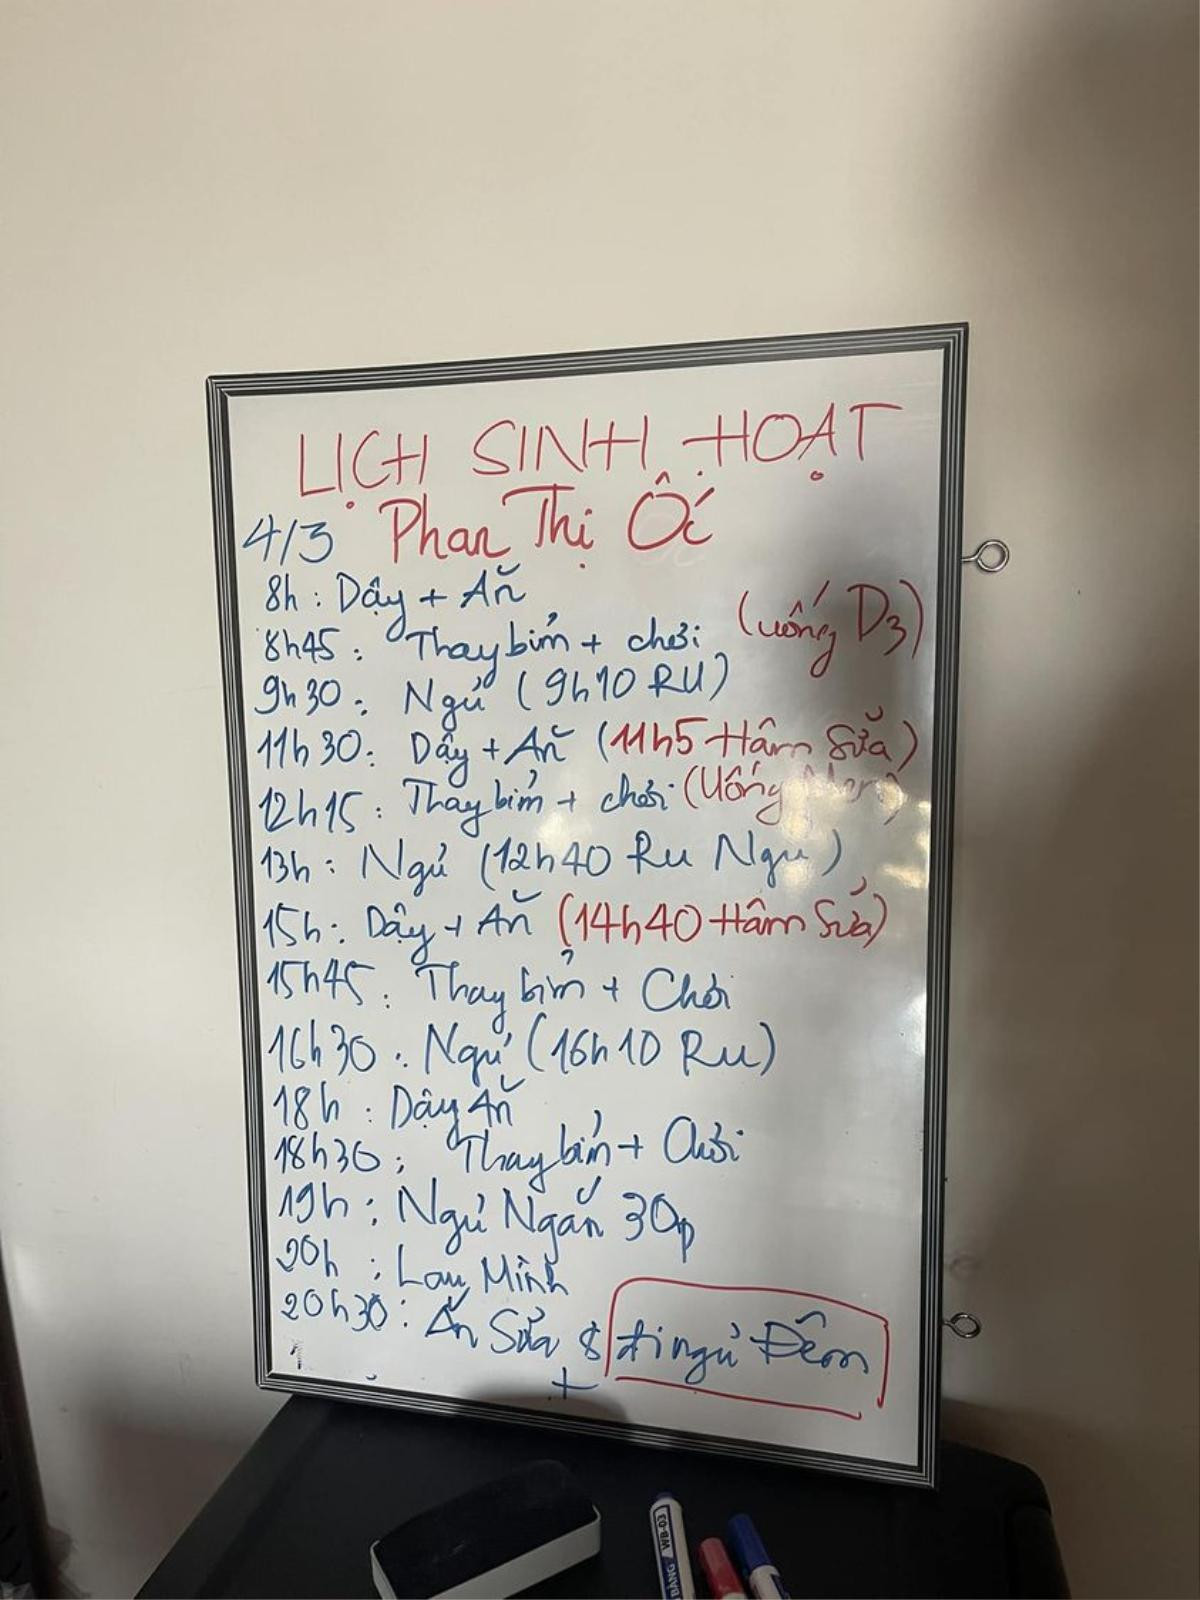 LỊCH SINH HOẠT
4/3 Phan Thị Ốc
8h: Dậy + Ăn
8h45: Thay bỉm + chơi (uống D3)
9h30: Ngủ (9h10 RU)
11h30: Dậy + Ăn (11h5 Hâm Sữa)
12h15: Thay bỉm + chơi (Uống
13h: Ngủ (12h40 Ru Ngủ)
15h: Dậy + Ăn (14h40 Hâm Sữa)
15h45: Thay bỉm + Chơi
16h30: Ngủ (16h10 Ru)
18h: Dậy Ăn
18h30: Thay bỉm + Chơi
19h: Ngủ Ngắn 30p
20h: Lau Mình
20h30: Ăn Sữa & đi ngủ Đêm
+
WB-03
BẢNG